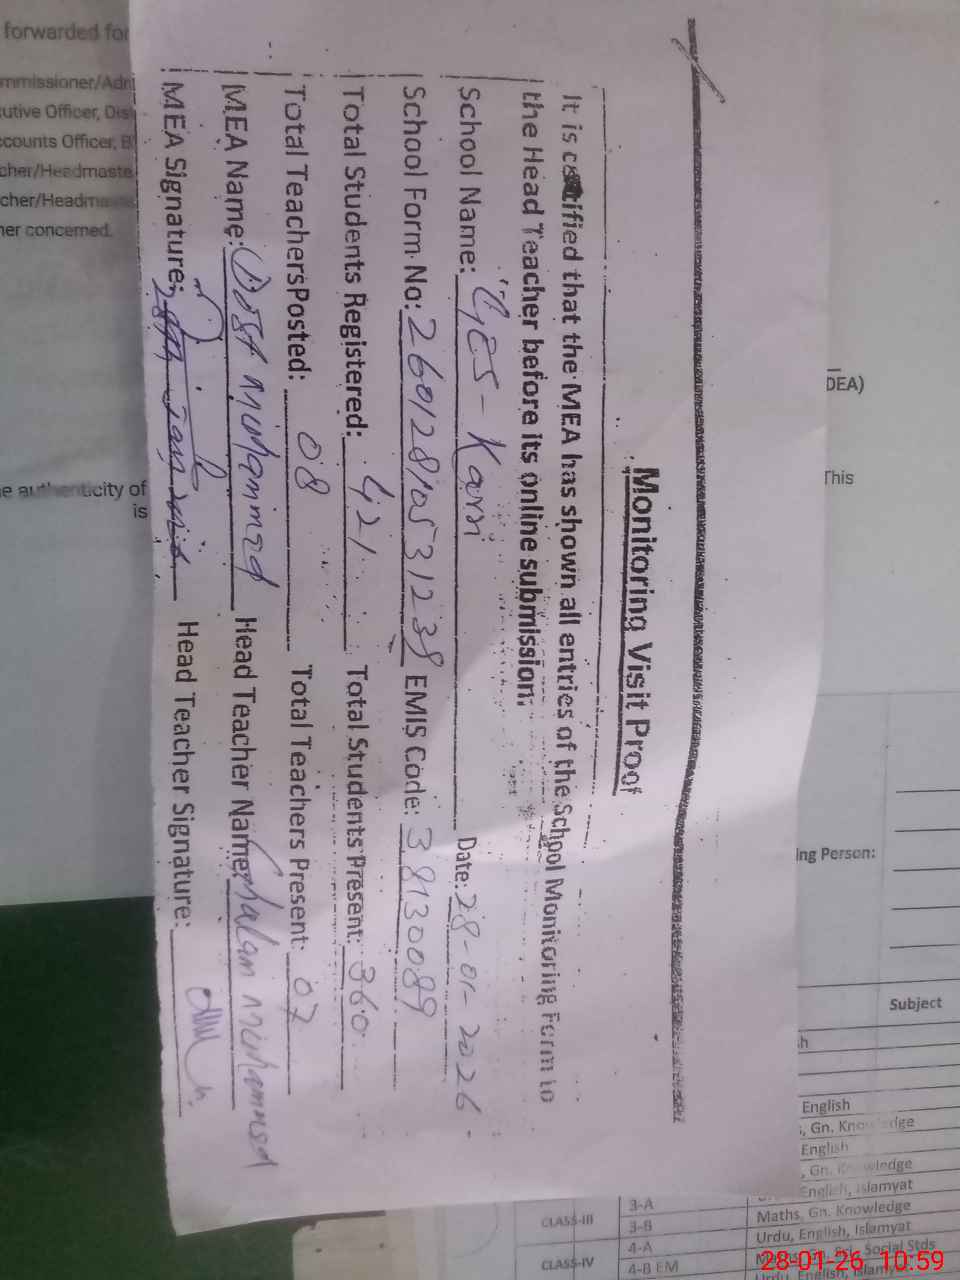 Monitoring Visit Proof
It is certified that the MEA has shown all entries of the School Monitoring Form to
the Head Teacher before its online submission.
School Name: GES- Karri Date: 28-01-2026
School Form No: 26012810531238 EMIS Code: 38130089
Total Students Registered: 421 Total Students Present: 360
Total TeachersPosted: 08 Total Teachers Present: 07
MEA Name: Dost Muhammad Head Teacher Name: Ghulam Muhammad
MEA Signature: Head Teacher Signature:
forwarded for
mmissioner/Adn
utive Officer, Dis
ccounts Officer, B
cher/Headmaste
cher/Headma
ner concerned.
e authenticity of
is
DEA)
This
ing Person:
Subject
h
English
, Gn. Knowledge
English
, Gn. Knowledge
English, Islamyat
CLASS-III 3-A Maths, Gn. Knowledge
3-B Urdu, English, Islamyat
CLASS-IV 4-A Social Stds
4-B EM Urdu, English, Islamyat
28-01-26 10:59